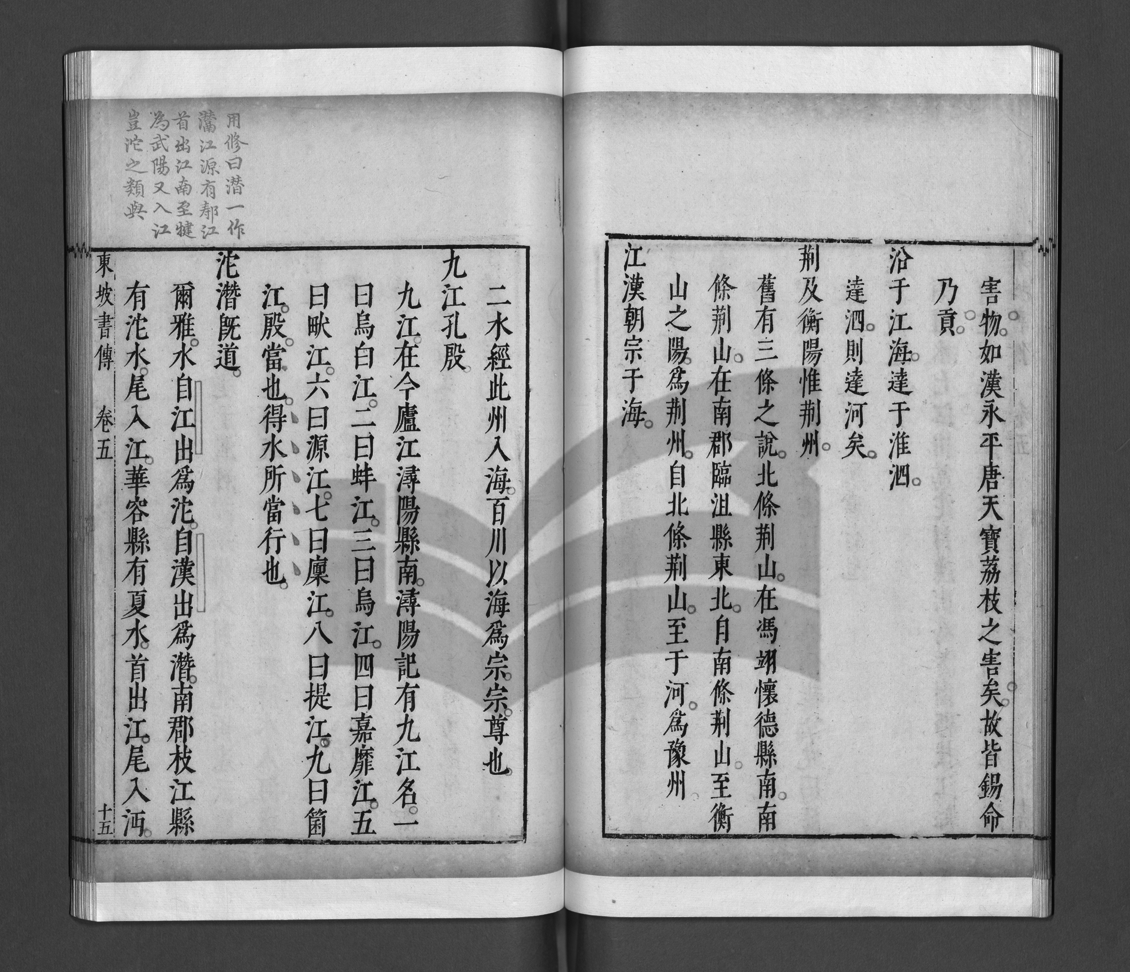 害物。如漢永平唐天寶荔枝之害矣。故皆錫命
乃貢。
沿于江海。達于淮泗。
達泗。則達河矣。
荊及衡陽惟荊州。
舊有三條之說。北條荊山。在馮翊懷德縣南。南
條荊山。在南郡臨沮縣東北。自南條荊山。至衡
山之陽。爲荊州。自北條荊山。至于河。爲豫州
江漢朝宗于海。
二水經此州入海。百川以海爲宗。宗。尊也。
九江孔殷。
九江。在今廬江潯陽縣南。潯陽記有九江名。一
曰烏白江。二曰蚌江。三曰烏江。四曰嘉靡江。五
曰畎江。六曰源江。七曰廩江。八曰提江。九曰箘
江。殷。當也。得水所當行也。
沱潛旣道。
爾雅。水自江出爲沱。自漢出爲潛。南郡枝江縣
有沱水。尾入江。華容縣有夏水。首出江。尾入沔。
東坡書傳 卷五 十五
用修曰潛一作
灊江源有𨞪江
首出江南至犍
為武陽又入江
豈沱之類與